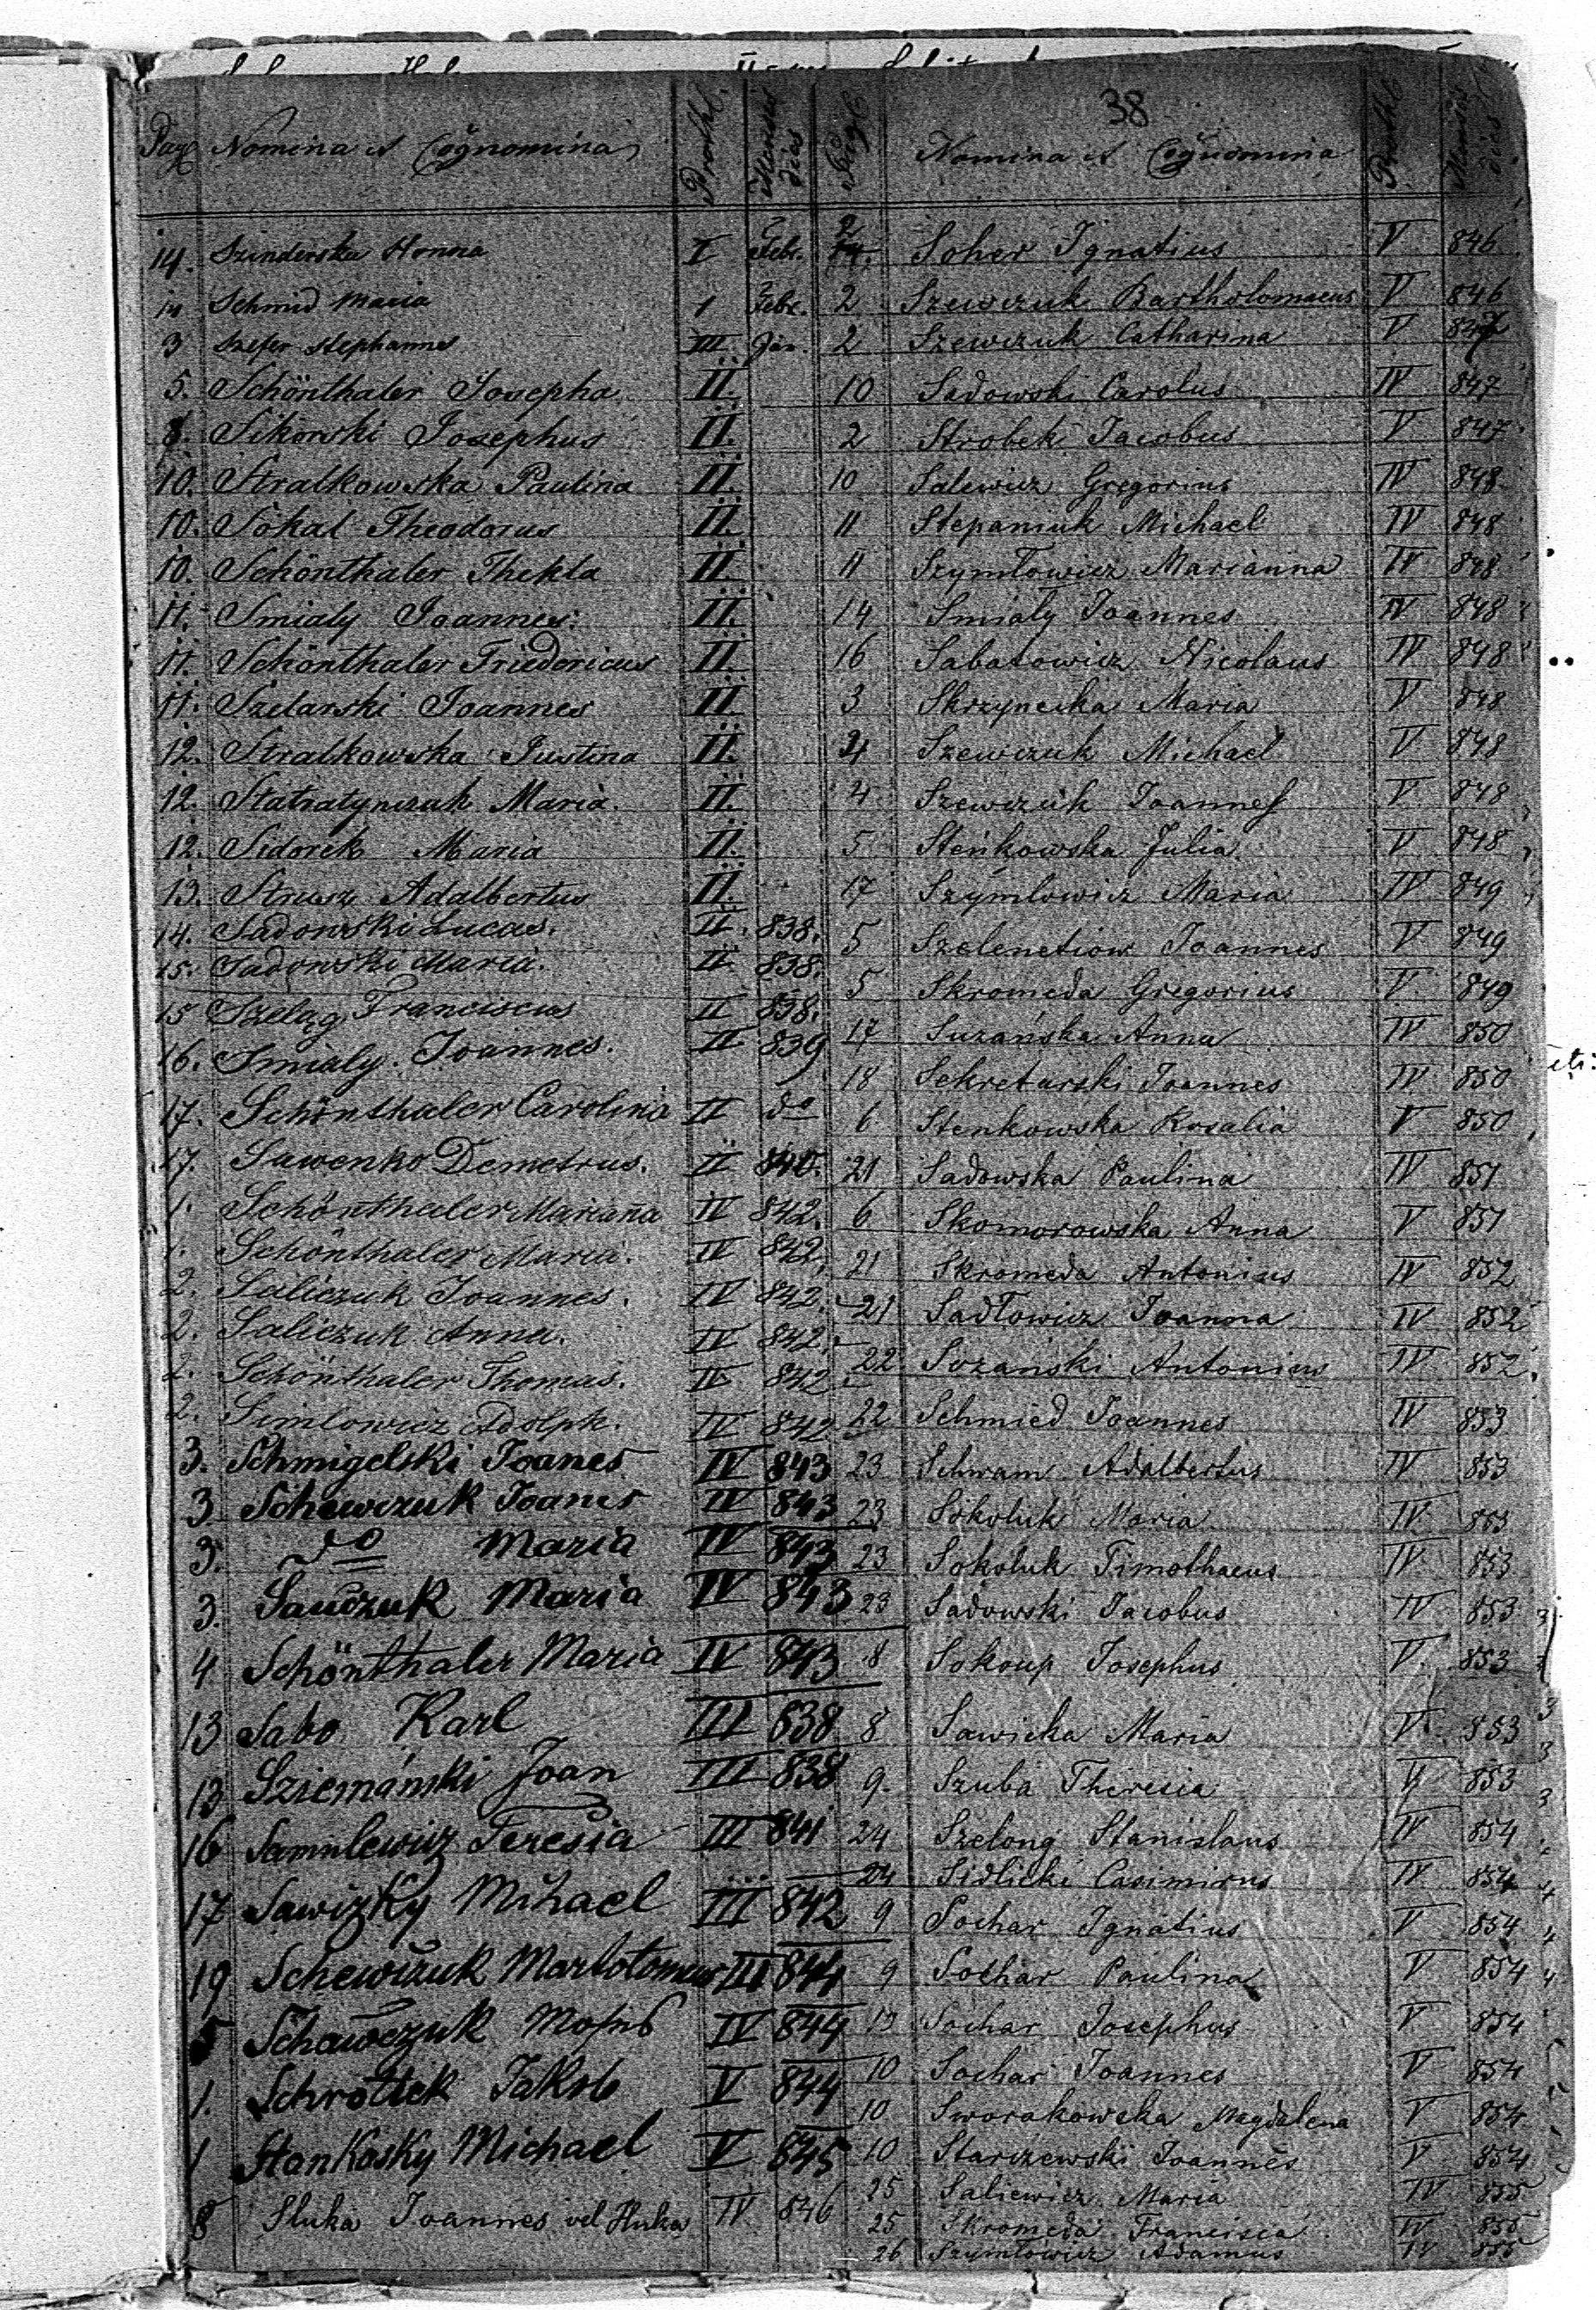 38
Pag Nomina et Cognomina Prothl. Mensis dies
14. Szinderska Honna I 2 Febr.
14 Schmid Maria I 2 Febr.
3 Szefer Stephannes III Jan.
5. Schönthaler Josepha II.
8. Sikorski Josephus II.
10. Stralkowska Paulina II.
10. Sokal Theodorus II.
10. Schönthaler Thekla II.
11. Smialy Joannes II.
11. Schönthaler Friedericus II.
11. Szelarski Joannes II
12. Stralkowska Justina II.
12. Statratynczuk Maria II.
12. Sidorek Maria II.
13. Strusz Adalbertus II.
14. Sadowski Lucas. II. 838.
15. Sadowski Maria. II. 838.
15 Szeląg Franciscus II 838.
16. Smialy Joannes. II 839
17. Schönthaler Carolina II do
17. Sawenko Demetrus. II 840.
1. Schönthaler Mariana IV 842.
1. Schönthaler Maria. IV 842,
2. Saliczuk Joannes. IV 842.
2. Saliczuk Anna. IV 842.
2. Schönthaler Thomas. IV 842
2. Simlowicz Adolph. IV 842
3. Schmigelski Joanes IV 843
3. Schewczuk Joanes IV 843
3. do Maria IV 843
3. Sauczuk Maria IV 843
4 Schönthaler Maria IV 843
13 Sabo Karl III 838
13 Sziemański Joan III 838
16 Samulewicz Teresia III 841
17 Sawizky Mihael III 842
19 Schewczuk Marlotomus III 844
5 Schawczuk IV 844
1. Schrottek Jakob V 844
1 Stankosky Michael V 845
8 Sluka Joannes vel Hluka IV 846
Pag Nomina et Cognomina Prothl Mensis dies
2 Soher Ignatius V 846
2 Szewczuk Bartholomaeus V 846
2 Szewczuk Catharina V 847
10 Sadowski Carolus IV 847
2 Strobek Jacobus V 847
10 Salewicz Gregorius IV 848
11 Stepaniuk Michael IV 848
11 Szymłowicz Marianna IV 848
14 Smialy Joannes IV 848
16 Sabatowicz Nicolaus IV 848
3 Skrzynecka Maria V 848
4 Szewczuk Michael V 848
4 Szewczuk Joannes V 848
5 Stenkowska Julia V 848
17 Szymlowicz Maria IV 849
5 Szelenetiow Joannes V 849
5 Skromeda Gregorius V 849
17 Suzańska Anna IV 850
18 Sekretarski Joannes IV 850
6 Stenkowska Rosalia V 850
21 Sadowska Paulina IV 851
6 Skomorowska Anna V 851
21 Skromeda Antonius IV 852
21 Sadłowicz Joanna IV 852
22 Sozanski Antonius IV 852
22 Schmied Joannes IV 853
23 Schwam Adalbertus IV 853
23 Sokoluk Maria IV 853
23 Sokoluk Timothaeus IV 853
23 Sadowski Jacobus IV 853
8 Sokoup Josephus V 853
8 Sawicka Maria V 853
9. Szuba Theresia V 853
24 Szelong Stanislaus IV 854
24 Sidlicki Casimirus IV 854
9 Sochar Ignatius V 854
9 Sochar Paulina V 854
Sochar Josephus V 854
10 Sochar Joannes V 854
10 Sworakowska Magdalena V 854
10 Starczewski Joannes V 854
25 Saliewicz Maria IV 855
25 Skromeda Francisca IV 855
26 Szymłowicz Adamus IV 855